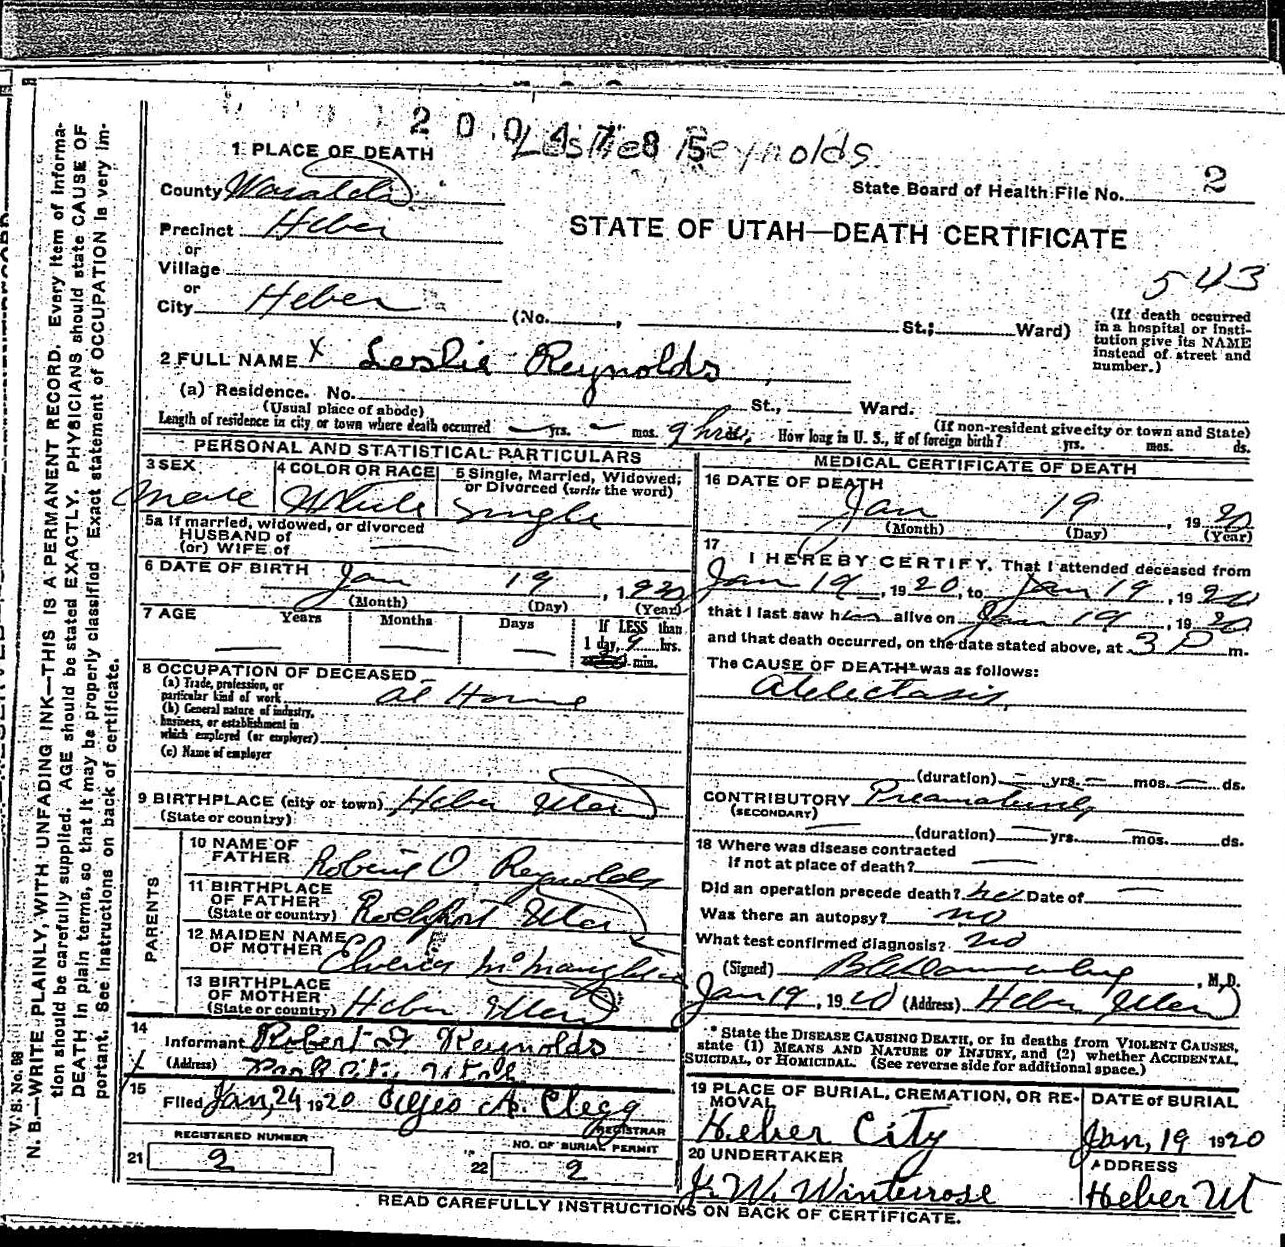 2004785
Leslie Reynolds
1 PLACE OF DEATH
County Wasatch
State Board of Health File No. 2
Precinct Heber
STATE OF UTAH—DEATH CERTIFICATE
or
Village
or
543
City Heber (No. , St.; Ward)
(If death occurred in a hospital or institution give its NAME instead of street and number.)
2 FULL NAME X Leslie Reynolds
(a) Residence. No. St., Ward.
(Usual place of abode) (If non-resident give city or town and State)
Length of residence in city or town where death occurred — yrs. — mos. 9 hrs. How long in U. S., if of foreign birth? yrs. mos. ds.
PERSONAL AND STATISTICAL PARTICULARS
3 SEX Male
4 COLOR OR RACE White
5 Single, Married, Widowed, or Divorced (write the word) Single
5a If married, widowed, or divorced
HUSBAND of
(or) WIFE of —
6 DATE OF BIRTH Jan 19, 1920
(Month) (Day) (Year)
7 AGE Years Months Days If LESS than
— — — 1 day, 9 hrs.
min.
8 OCCUPATION OF DECEASED
(a) Trade, profession, or
particular kind of work At Home
(b) General nature of industry,
business, or establishment in
which employed (or employer)
(c) Name of employer
9 BIRTHPLACE (city or town) Heber Utah
(State or country)
PARENTS
10 NAME OF
FATHER Robert D Reynolds
11 BIRTHPLACE
OF FATHER
(State or country) Rockport Utah
12 MAIDEN NAME
OF MOTHER McNaughton
13 BIRTHPLACE
OF MOTHER
(State or country) Heber Utah
14
Informant Robert D Reynolds
(Address) Park City Utah
15
Filed Jan, 24 1920 A. Clegg
REGISTRAR
REGISTERED NUMBER
21 2
NO. OF BURIAL PERMIT
22 2
MEDICAL CERTIFICATE OF DEATH
16 DATE OF DEATH
Jan 19, 1920
(Month) (Day) (Year)
17
I HEREBY CERTIFY, That I attended deceased from
Jan 19, 1920, to Jan 19, 1920
that I last saw him alive on Jan 19, 1920
and that death occurred, on the date stated above, at 3 P m.
The CAUSE OF DEATH* was as follows:
Atelectasis
(duration) — yrs. — mos. — ds.
CONTRIBUTORY Preamaturity
(SECONDARY)
— (duration) — yrs. — mos. ds.
18 Where was disease contracted
if not at place of death? —
Did an operation precede death? no Date of —
Was there an autopsy? no
What test confirmed diagnosis? no
(Signed) , M.D.
Jan 19, 1920 (Address) Heber Utah
* State the DISEASE CAUSING DEATH, or in deaths from VIOLENT CAUSES,
state (1) MEANS AND NATURE OF INJURY, and (2) whether ACCIDENTAL,
SUICIDAL, or HOMICIDAL. (See reverse side for additional space.)
19 PLACE OF BURIAL, CREMATION, OR RE-
MOVAL
Heber City
DATE of BURIAL
Jan, 19 1920
20 UNDERTAKER
J. W. Winterrose
ADDRESS
Heber Ut
READ CAREFULLY INSTRUCTIONS ON BACK OF CERTIFICATE.
V. S. No. 98
N. B.—WRITE PLAINLY, WITH UNFADING INK—THIS IS A PERMANENT RECORD. Every item of informa-
tion should be carefully supplied. AGE should be stated EXACTLY. PHYSICIANS should state CAUSE OF
DEATH in plain terms, so that it may be properly classified. Exact statement of OCCUPATION is very im-
portant. See instructions on back of certificate.